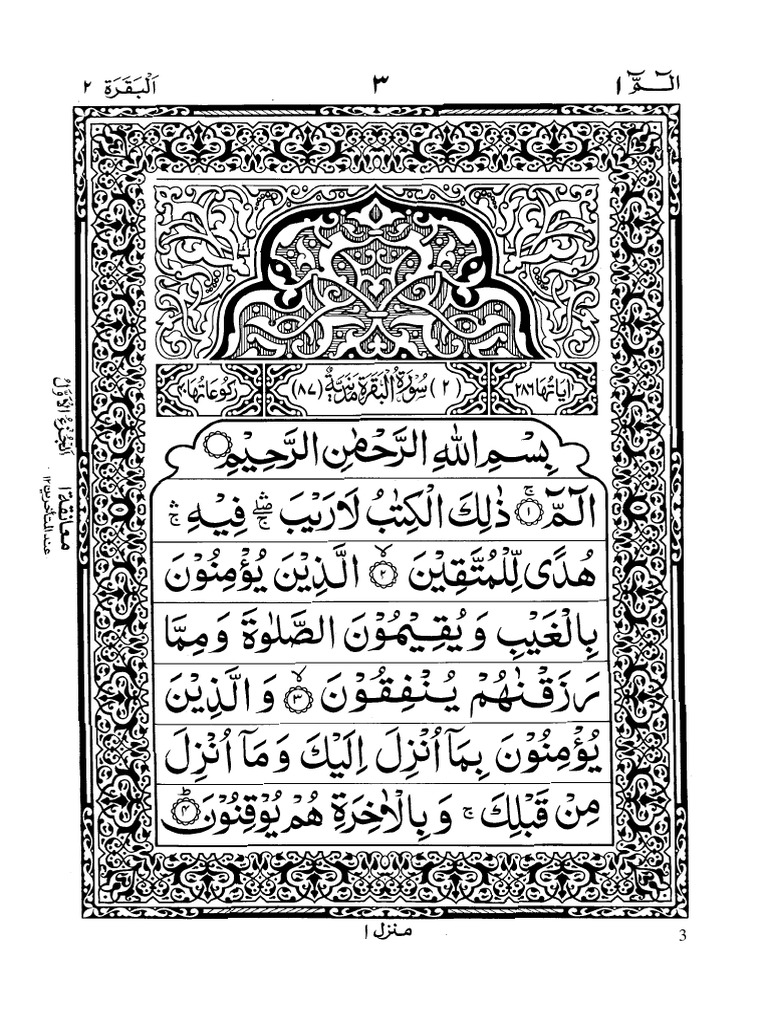 الٓمّٓ ١
٣
اَلْبَقَرَة ٢
اٰیَاتُهَا ٢٨٦
(٢) سُوْرَةُ الْبَقَرَةِ مَدَنِيَّةٌ (٨٧)
رُكُوْعَاتُهَا ٤٠
بِسْمِ اللّٰهِ الرَّحْمٰنِ الرَّحِيْمِ
الٓمّٓ ۚ‏ ١ ذٰلِكَ الْكِتٰبُ لَا رَيْبَ ۛۖۚ فِيْهِ ۛۚ
هُدًى لِّلْمُتَّقِيْنَ ۙ‏ ٢ الَّذِيْنَ يُؤْمِنُوْنَ
بِالْغَيْبِ وَ يُقِيْمُوْنَ الصَّلٰوةَ وَ مِمَّا
رَزَقْنٰهُمْ يُنْفِقُوْنَ ۙ‏ ٣ وَ الَّذِيْنَ
يُؤْمِنُوْنَ بِمَاۤ اُنْزِلَ اِلَيْكَ وَ مَاۤ اُنْزِلَ
مِنْ قَبْلِكَ ۚ وَ بِالْاٰخِرَةِ هُمْ يُوْقِنُوْنَ ؕ‏ ٤
اَلْجُزْءُ الْاَوَّلُ
معانقة ١
عند المتأخرين ١٢
منزل ١
3